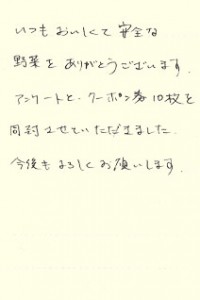 いつもおいしくて安全な
野菜をありがとうございます.
アンケートと.クーポン券10枚を
同封させていただきました.
今後もよろしくお願いします.